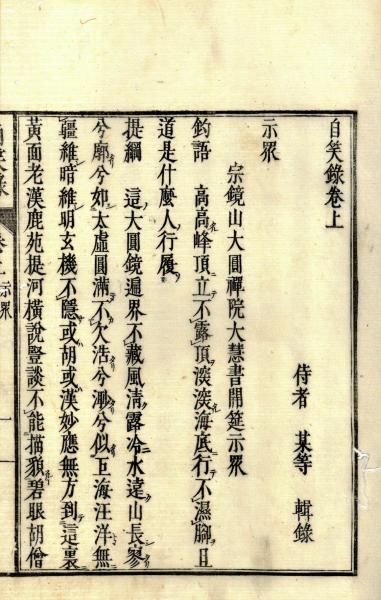 自笑錄卷上
侍者 某等 輯錄
示眾
宗鏡山大圓禪院大慧書開筵示眾
鈎語 高高峰頂立不露頂深深海底行不濕腳且
道是什麼人行履
提綱 這大圓鏡遍界不藏風清露冷水遠山長寥
兮廓兮如太虛圓滿不欠浩兮渺兮似巨海汪洋無
疆維暗維明玄機不隱或胡或漢妙應無方到這裏
黃面老漢鹿苑提河橫說豎談不能描貌碧眼胡僧